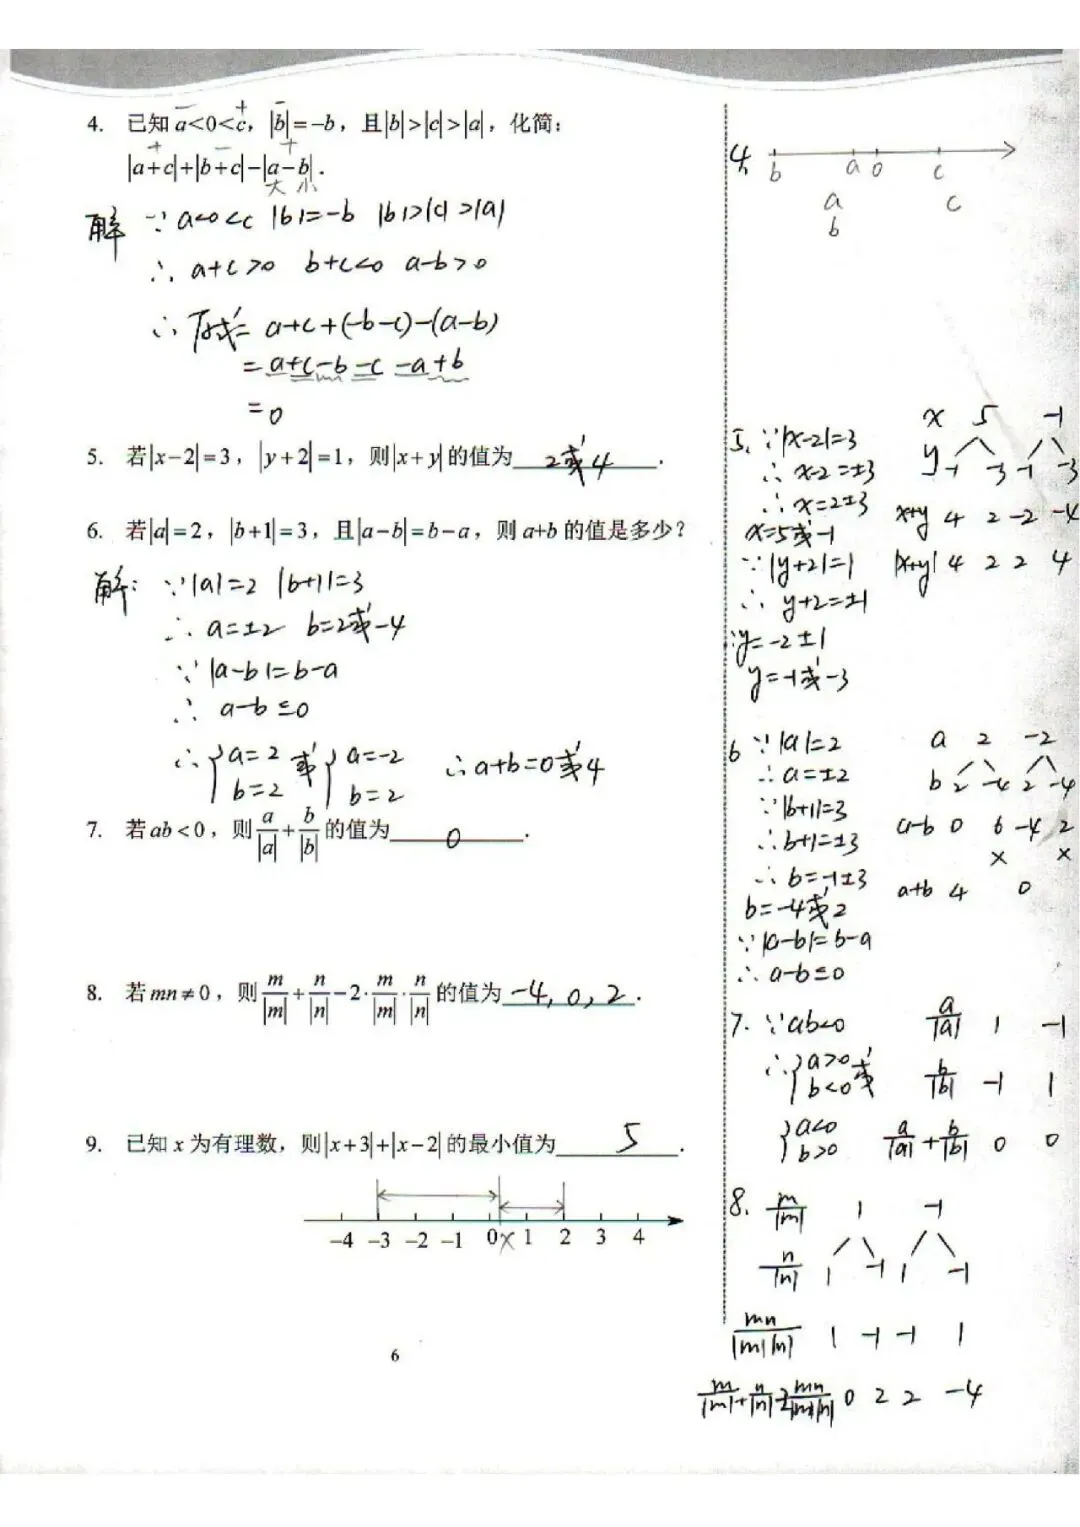 4. 已知 a<0<c, |b|=-b, 且|b|>|c|>|a|, 化简:
− + −
|a+c|+|b+c|-|a-b|.
+ − +
大 小
解 ∵ a<0<c |b|=-b |b|>|c|>|a|
∴ a+c>0 b+c<0 a-b>0
∴ 原式= a+c+(-b-c)-(a-b)
= a+c-b-c-a+b
=0
5. 若|x-2|=3, |y+2|=1, 则|x+y|的值为 2或4 .
6. 若|a|=2, |b+1|=3, 且|a-b|=b-a, 则 a+b 的值是多少?
解: ∵|a|=2 |b+1|=3
∴ a=±2 b=2或-4
∵ |a-b|=b-a
∴ a-b≤0
∴ {a=2 或 {a=-2 ∴a+b=0或4
b=2 b=2
7. 若 ab<0, 则 a/|a| + b/|b| 的值为 0 .
8. 若 mn≠0, 则 m/|m| + n/|n| -2· m/|m| · n/|n| 的值为 -4, 0, 2 .
9. 已知 x 为有理数, 则|x+3|+|x-2|的最小值为 5 .
-4 -3 -2 -1 0 x 1 2 3 4
6
4. b a 0 c
a c
b
5. ∵|x-2|=3 x 5 -1
∴ x-2=±3 y -1 -3 -1 -3
∴ x=2±3 x+y 4 2 -2 -4
x=5或-1
∵|y+2|=1 |x+y| 4 2 2 4
∴ y+2=±1
∴y=-2±1
y=-1或-3
6 ∵|a|=2 a 2 -2
∴a=±2 b 2 -4 2 -4
∵|b+1|=3
∴b+1=±3 a-b 0 6 -4 2
× ×
∴b=-1±3 a+b 4 0
b=-4或2
∵|a-b|=b-a
∴a-b≤0
7. ∵ab<0 a/|a| 1 -1
∴{a>0 或 b/|b| -1 1
b<0
{a<0 a/|a|+b/|b| 0 0
b>0
8. m/|m| 1 -1
n/|n| 1 -1 1 -1
mn/|m||n| 1 -1 -1 1
m/|m|+n/|n|-2mn/|m||n| 0 2 2 -4